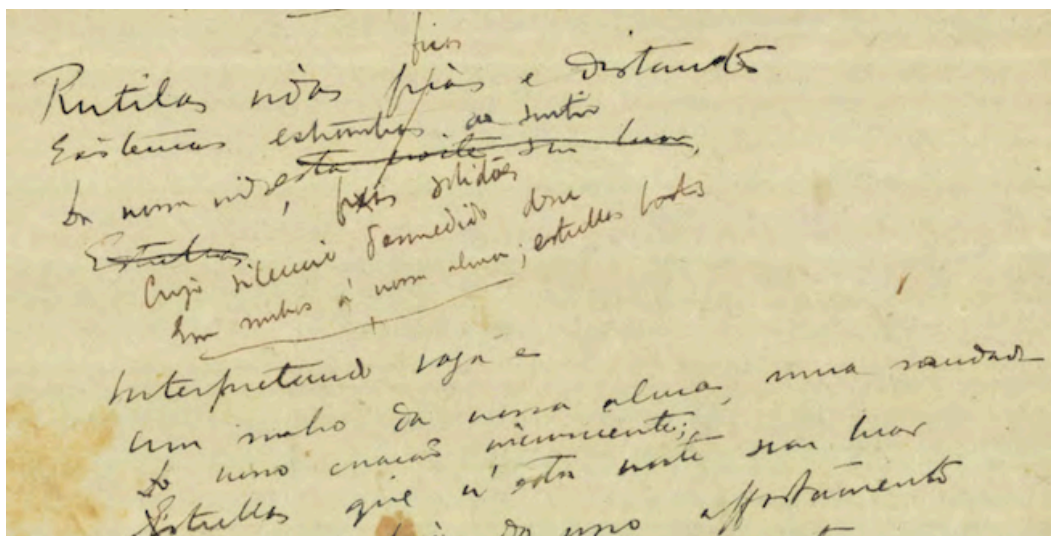 frios
Rutilas vidas frias e distantes
Existencias extranhas ao
Da nossa vida esta noite sem luar,
, frias solidões
Estrellas
Cujo silencio desmedido
Em sonhos á nossa alma; estrellas
Interpretando vaga e
um sonho da nossa alma, uma saudade
Do nosso coração inconsciente;
Estrellas que n'esta noite sem luar
do affastamento